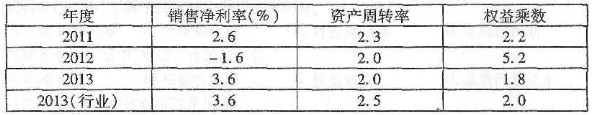 年度 销售净利率(%) 资产周转率 权益乘数
2011 2.6 2.3 2.2
2012 -1.6 2.0 5.2
2013 3.6 2.0 1.8
2013(行业) 3.6 2.5 2.0